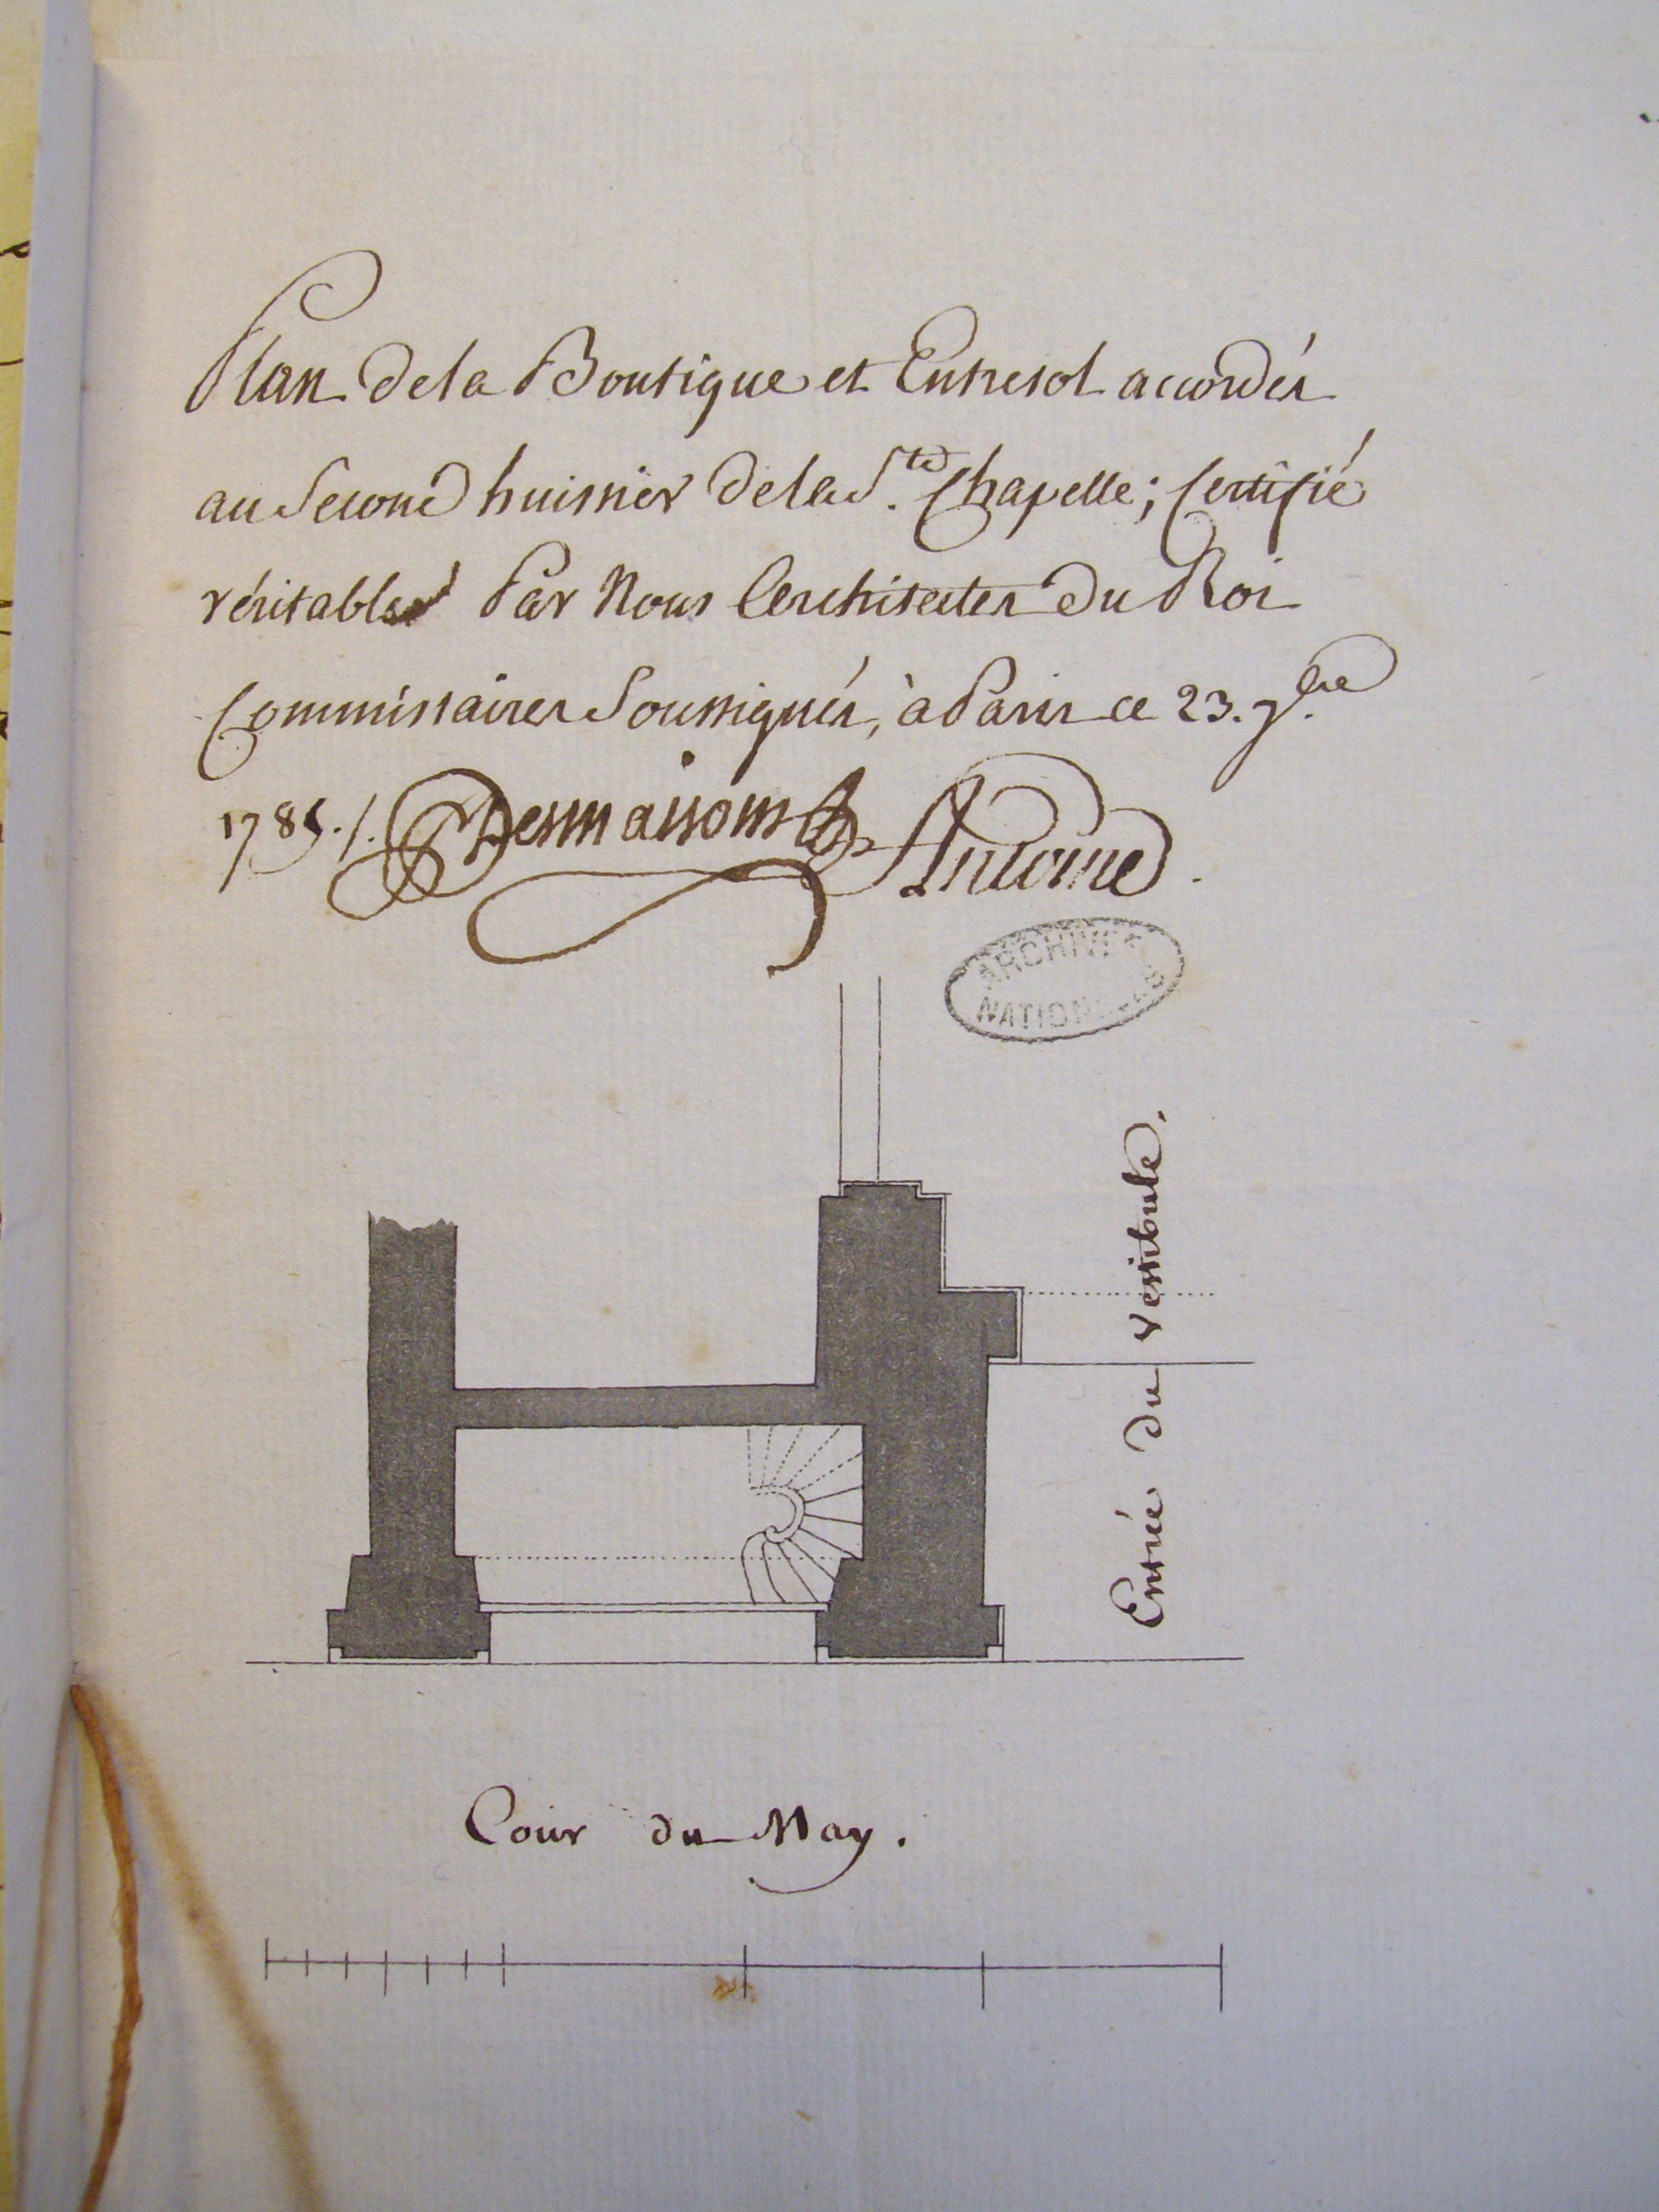 Plan de la Boutique et Entresol accordés
au Second huissier de la S.te Chapelle; Certifié
véritable Par Nous Architectes du Roi
Commissaires Soussignés, à Paris ce 23. 7.bre
1785./. Desmaisons Antoine.
ARCHIVES
NATIONALES
Entrée du Vestibule.
Cour du May.